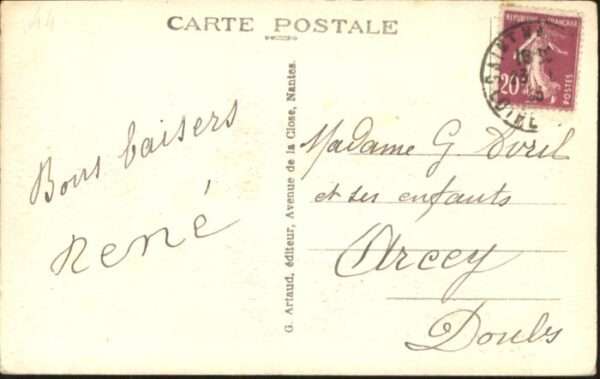 44
CARTE POSTALE
REPUBLIQUE FRANÇAISE
20
POSTES
Bons baisers
René
G. Artaud, éditeur, Avenue de la Close, Nantes.
Madame G. Dvril
et ses enfants
Arcey
Doubs